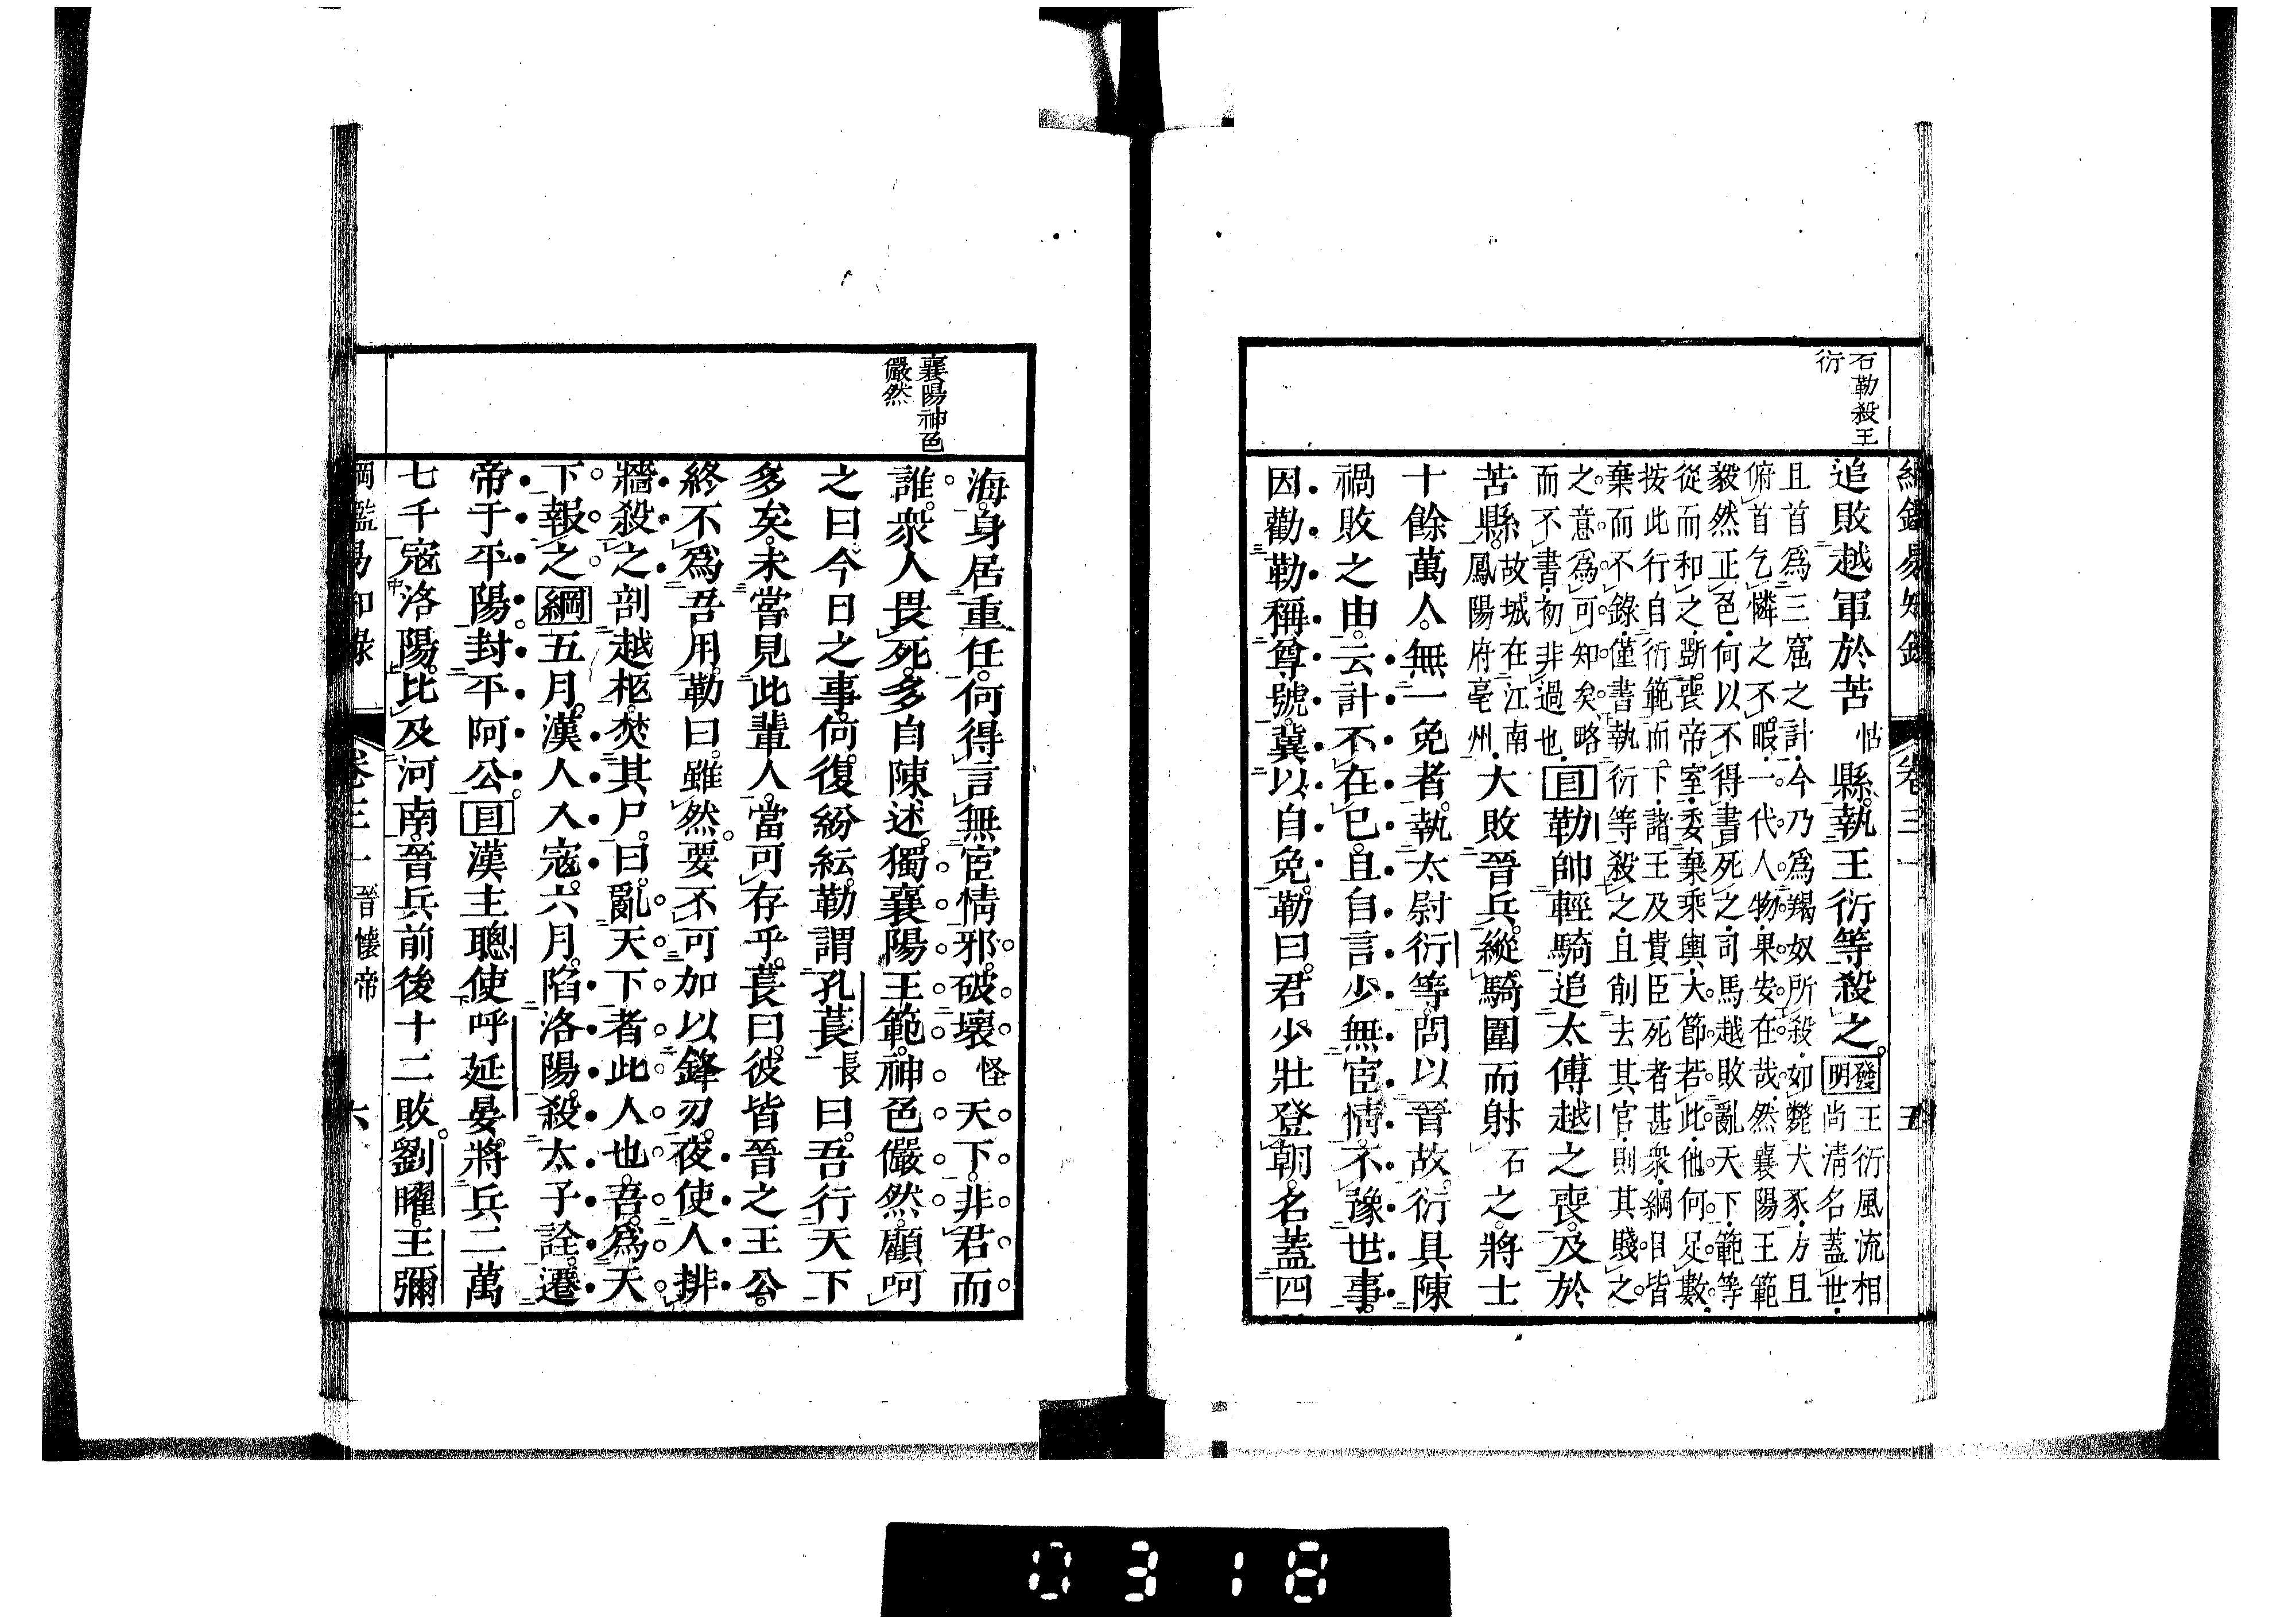 石勒殺王
衍
卷三一 五
追敗越軍於苦怙縣執王衍等殺之。發明王衍風流相
尚清名蓋世
且首爲三窟之計今乃爲羯奴所殺如斃犬豕方且
俯首乞憐之不暇一代人物果安在哉然襄陽王範
毅然正色何以不得書死之司馬越敗亂天下範等
從而和之斲喪帝室委棄乘輿大節若此他何足數
按此行自衍範而下諸王及貴臣死者甚衆綱目皆
棄而不錄僅書執衍等殺之且削去其官則其賤之
之意爲可知矣略
而不書初非過也目勒帥輕騎追太傅越之喪及於
苦縣故城在江南
鳳陽府亳州大敗晉兵縱騎圍而射石之將士
十餘萬人無一免者執太尉衍等問以晉故衍具陳
禍敗之由云計不在已且自言少無宦情不豫世事
因勸勒稱尊號冀以自免勒曰君少壯登朝名蓋四
襄陽神色
儼然
海身居重任何得言無宦情邪破壞怪天下非君而
誰衆人畏死多自陳述獨襄陽王範神色儼然顧呵
之曰今日之事何復紛紜勒謂孔萇長曰吾行天下
多矣未嘗見此輩人當可存乎萇曰彼皆晉之王公
終不爲吾用勒曰雖然要不可加以鋒刃夜使人排
牆殺之剖越柩焚其尸曰亂天下者此人也吾爲天
下報之綱五月漢人入寇六月陷洛陽殺太子詮遷
帝于平陽封平阿公目漢主聰使呼延晏將兵二萬
七千寇洛陽比及河南晉兵前後十二敗劉曜王彌
綱鑑易知錄 卷三一 晉懷帝 六
0318